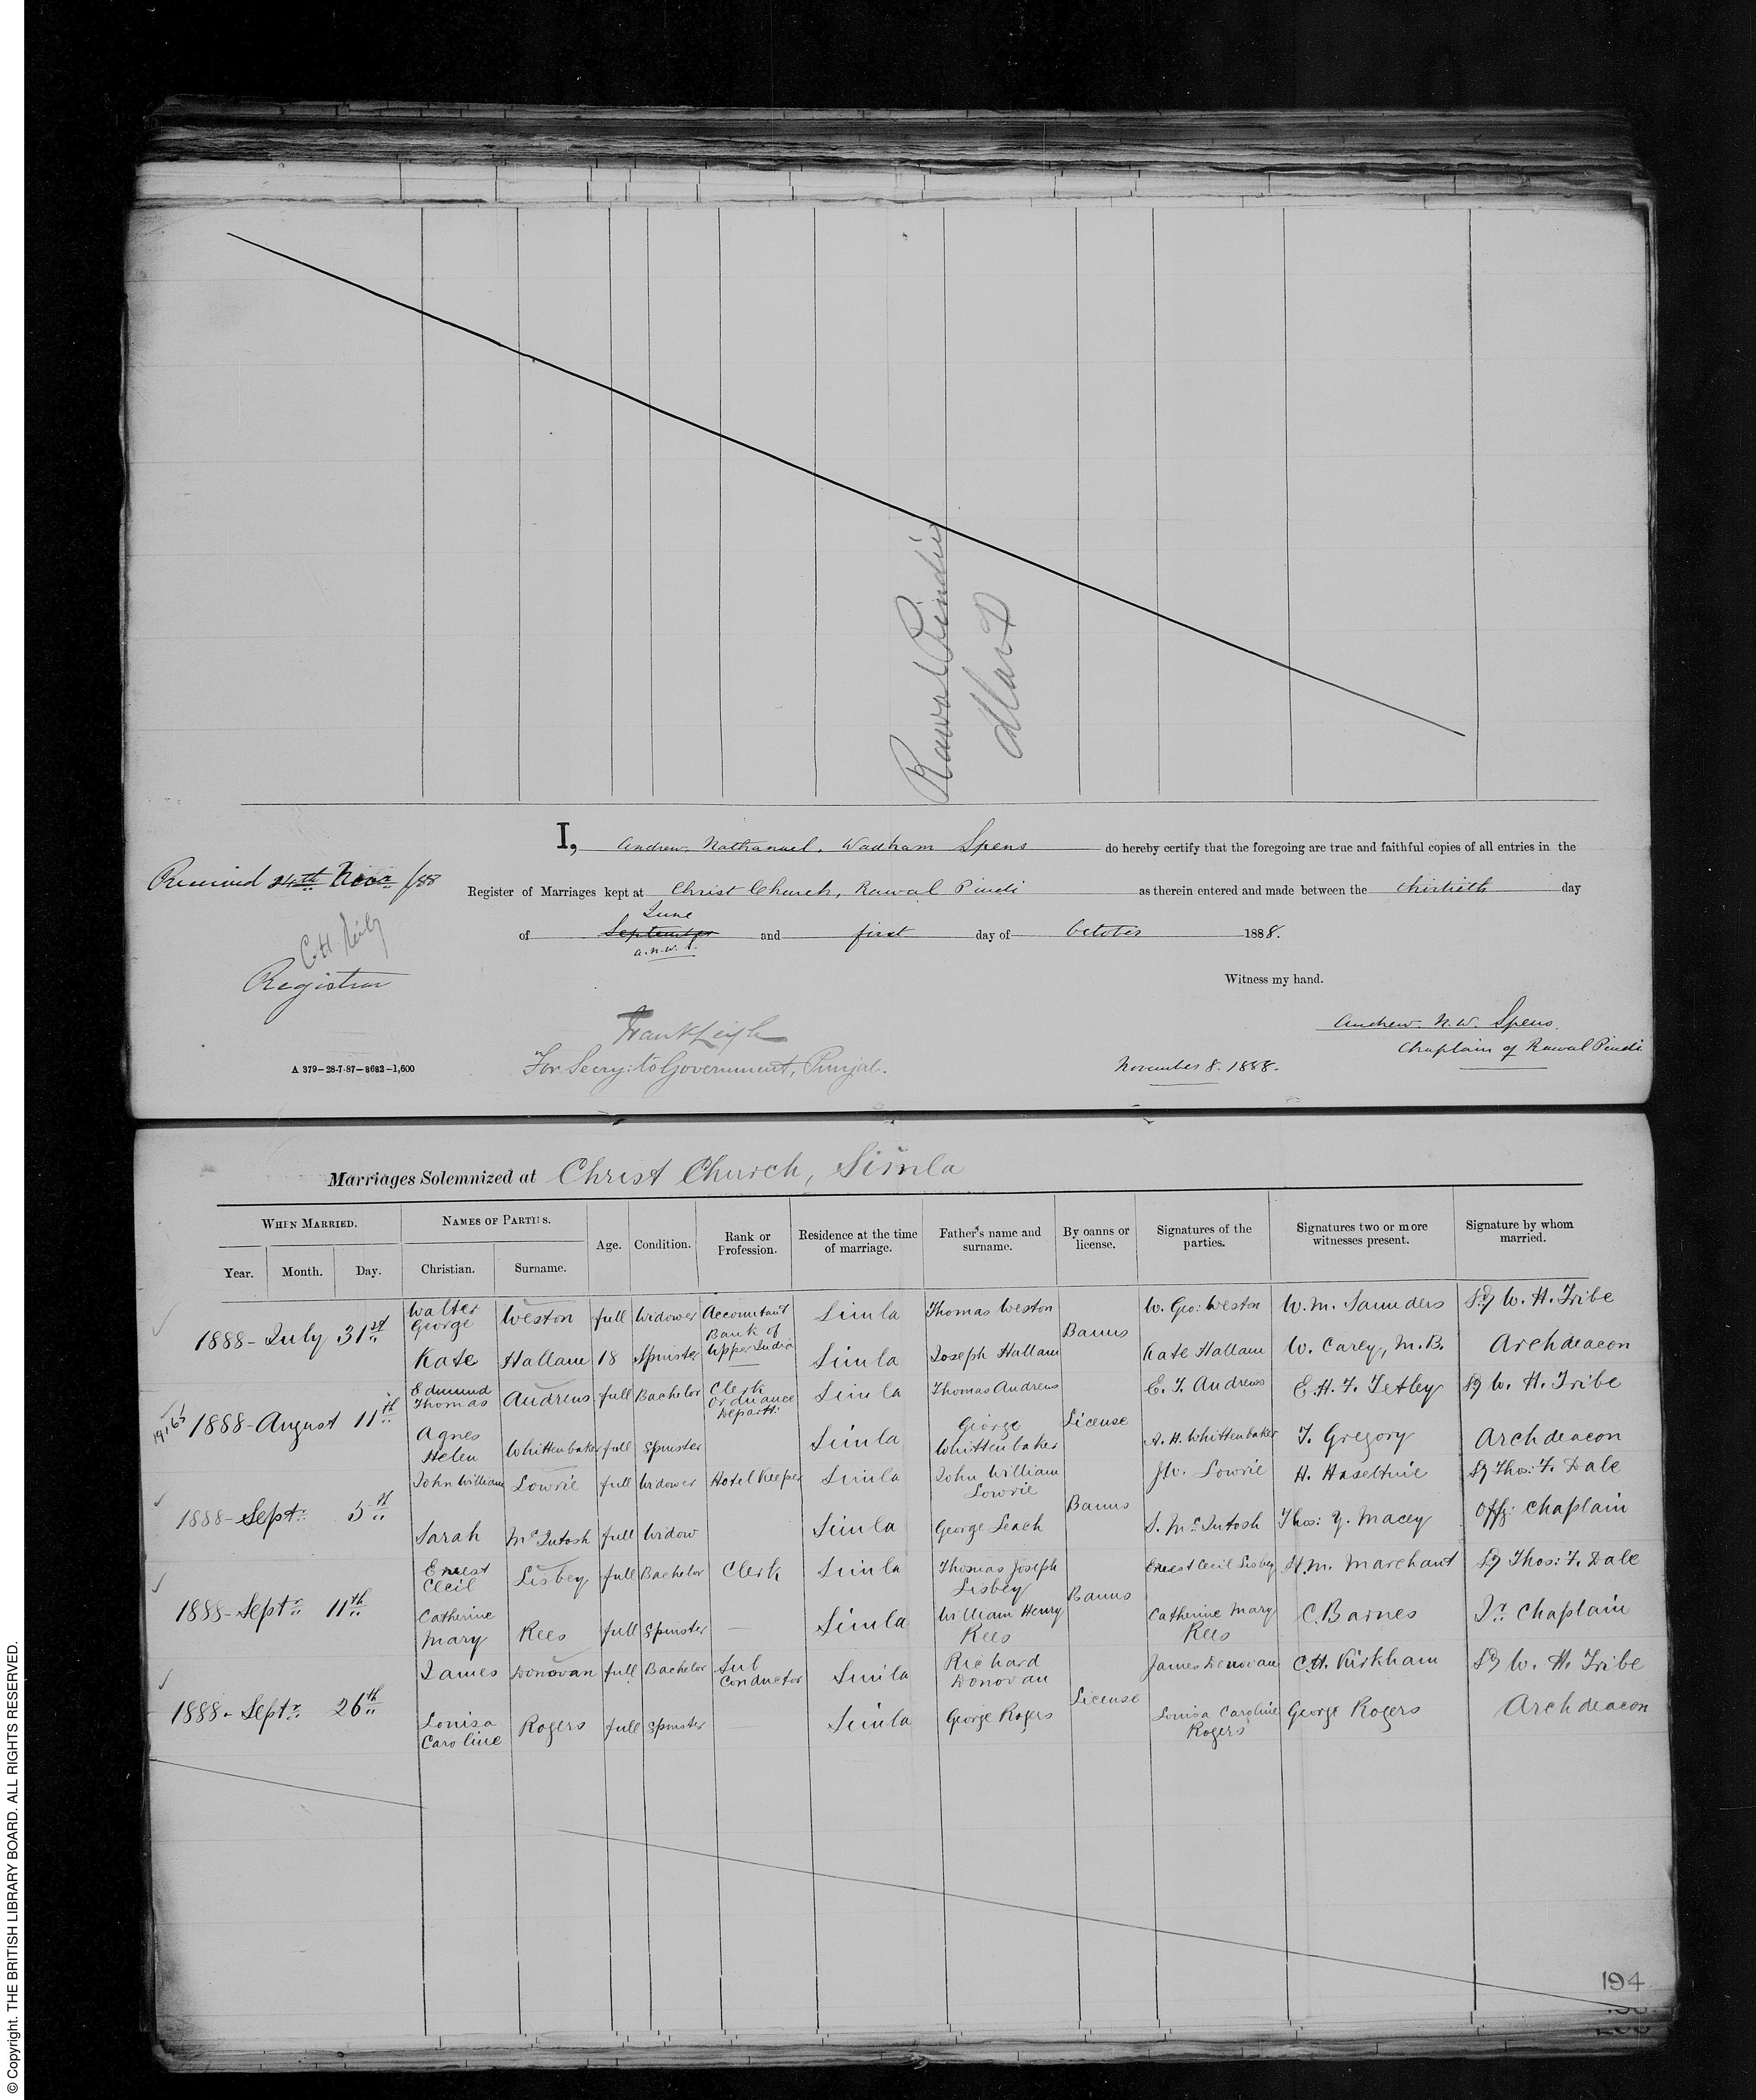 Rawal Pindi
I, Andrew Nathanael Wadham Spens do hereby certify that the foregoing are true and faithful copies of all entries in the
Received 24th Nov /88
Register of Marriages kept at Christ Church, Rawal Pindi as therein entered and made between the thirtieth day
June
of September and first day of October 1888.
a.n.w.S.
C.H.
Registrar
Witness my hand.
Frank Leigh
Andrew. N.W. Spens.
For Secry: to Government, Punjab.
Chaplain of Rawal Pindi
A 379–28-7-87–8682–1,600
November 8. 1888.
Marriages Solemnized at Christ Church, Simla
WHEN MARRIED. NAMES OF PARTIES. Age. Condition. Rank or Profession. Residence at the time of marriage. Father's name and surname. By banns or license. Signatures of the parties. Signatures two or more witnesses present. Signature by whom married.
Year. Month. Day. Christian. Surname.
1888 - July 31st Banns
Walter George Weston full Widower Accountant Bank of Upper India Simla Thomas Weston W. Geo: Weston W. M. Saunders Sg W. H. Tribe
Kate Hallam 18 Spinster Simla Joseph Hallam Kate Hallam W. Carey, M.B. Archdeacon
1888 - August 11th License
Edmund Thomas Andrews full Bachelor Clerk Ordnance Departt: Simla Thomas Andrews E. T. Andrews E. H. F. Tetley Sg W. H. Tribe
Agnes Helen Whittenbaker full Spinster Simla George Whittenbaker A. H. Whittenbaker T. Gregory Archdeacon
1888 - Septr: 5th Banns
John William Lowrie full Widower Hotel Keeper Simla John William Lowrie J W. Lowrie H. Haseltine Sg Thos: F. Dale
Sarah McIntosh full Widow Simla George Leach S. McIntosh Thos: Y. Macey Offg: Chaplain
1888 - Septr: 11th Banns
Ernest Cecil Lisbey full Bachelor Clerk Simla Thomas Joseph Lisbey Ernest Cecil Lisbey H. M. Marchant Sg Thos: F. Dale
Catherine Mary Rees full Spinster — Simla William Henry Rees Catherine Mary Rees C. Barnes Jr: Chaplain
1888 - Septr: 26th License
James Donovan full Bachelor Sub Conductor Simla Richard Donovan James Donovan C. H. Kirkham Sg W. H. Tribe
Louisa Caroline Rogers full Spinster Simla George Rogers Louisa Caroline Rogers George Rogers Archdeacon
194
© Copyright. THE BRITISH LIBRARY BOARD. ALL RIGHTS RESERVED.